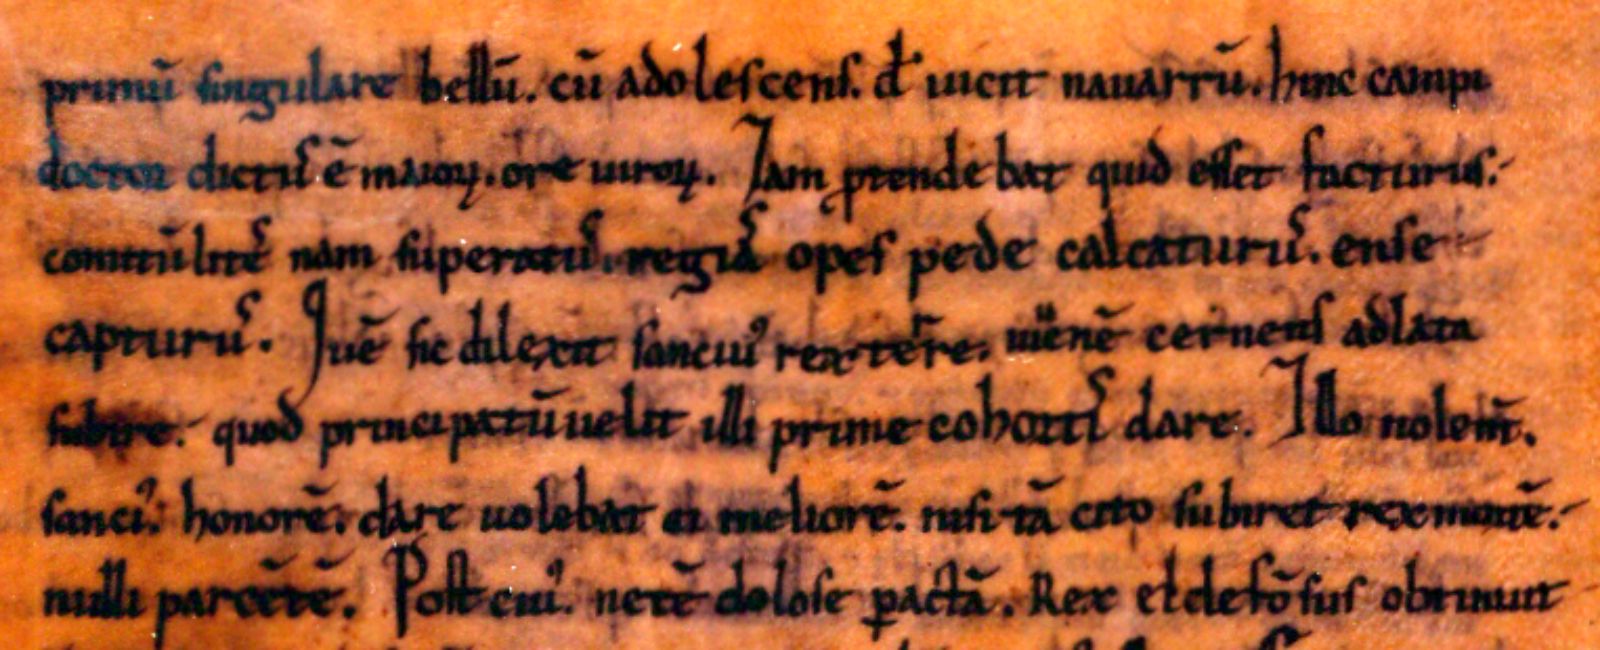 primū singulare bellū. cū adolescens. dͭ uicit nauarrū. hinc campi
doctor dictuſ ē maioꝝ. ore uiroꝝ. Iam ptendebat quid esset facturus.
comitū liteſ nam superatuſ. regiaſ opes pede calcaturuſ. ense
capturuſ. Quē sic dilexit sanciuꝰ rex terͬe. iuuenē cernens adlata
subire. quod principatū uelit illi prime cohortiſ dare. Illo nolente.
sanciꝰ. honorē. dare uolebat ei meliorē. nisi tā cito subiret rex mortē.
nulli parcētē. Post cuiꝰ. necē dolose ꝑactā. Rex eldefōsus obtinuit